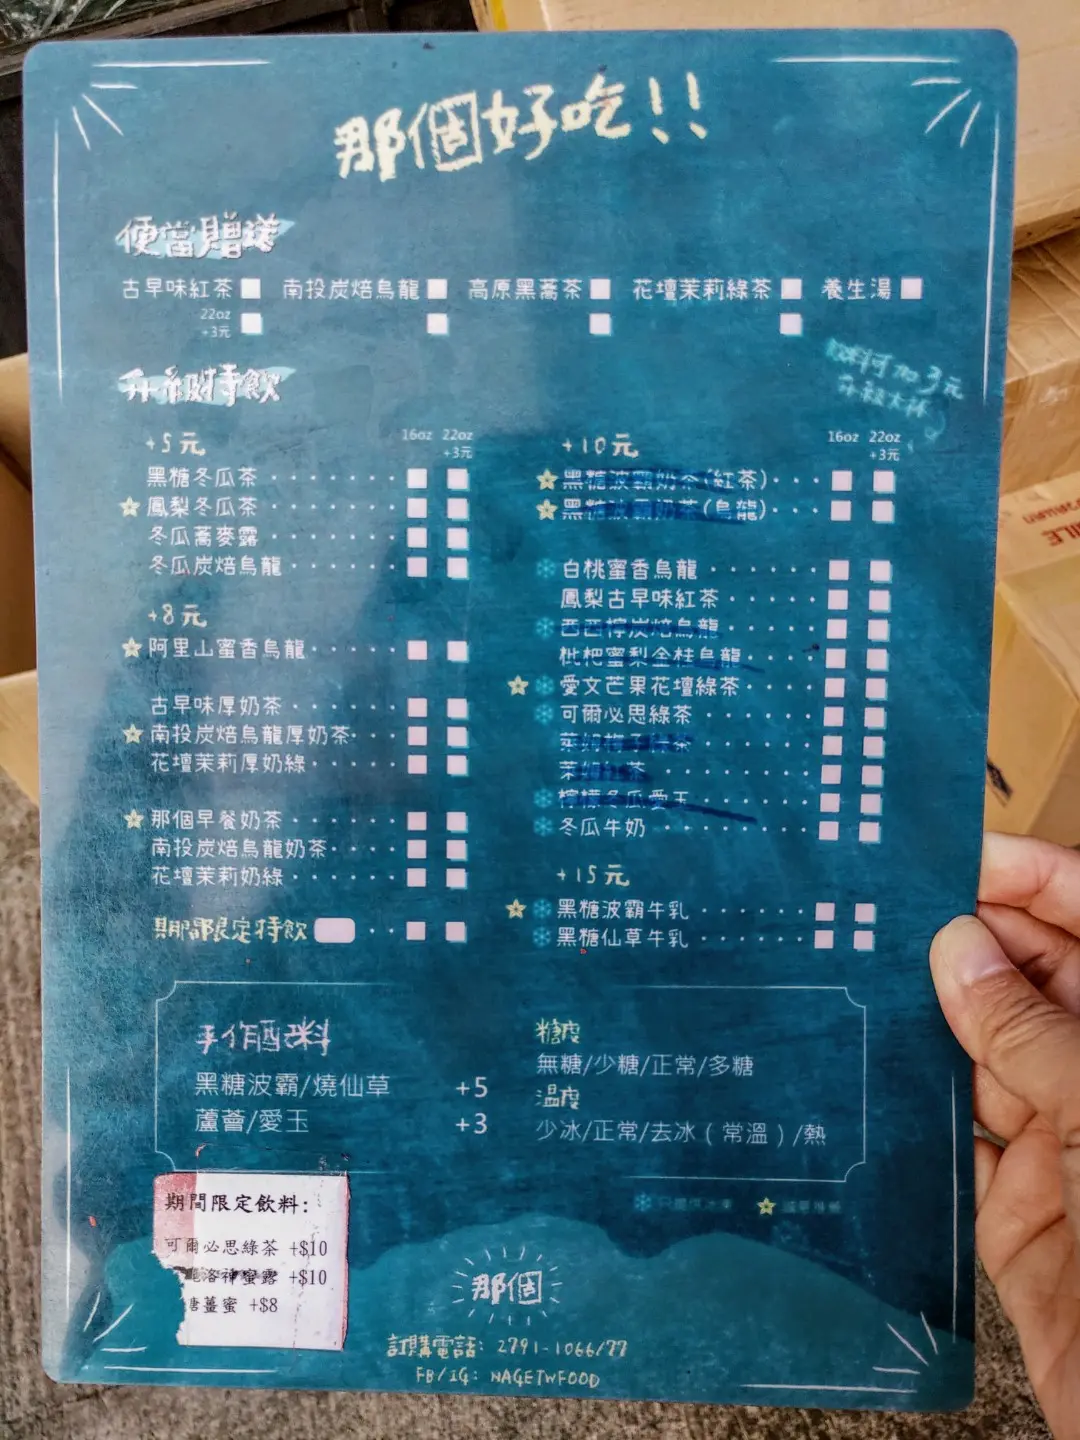 那個好吃!!
便當贈送
古早味紅茶 南投炭焙烏龍 高原黑蕎茶 花壇茉莉綠茶 養生湯
22oz
+3元
飲料可加3元
升級大杯
升級附特飲
+5元 16oz 22oz
+3元
黑糖冬瓜茶
鳳梨冬瓜茶
冬瓜蕎麥露
冬瓜炭焙烏龍
+8元
阿里山蜜香烏龍
古早味厚奶茶
南投炭焙烏龍厚奶茶
花壇茉莉厚奶綠
那個早餐奶茶
南投炭焙烏龍奶茶
花壇茉莉奶綠
期間限定特飲
+10元 16oz 22oz
+3元
黑糖波霸奶茶(紅茶)
黑糖波霸奶茶(烏龍)
白桃蜜香烏龍
鳳梨古早味紅茶
西西檸炭焙烏龍
枇杷蜜梨金桂烏龍
愛文芒果花壇綠茶
可爾必思綠茶
檸檬冬瓜愛玉
冬瓜牛奶
+15元
黑糖波霸牛乳
黑糖仙草牛乳
手作配料
黑糖波霸/燒仙草 +5
蘆薈/愛玉 +3
糖度
無糖/少糖/正常/多糖
溫度
少冰/正常/去冰(常溫)/熱
期間限定飲料:
可爾必思綠茶 +$10
洛神蜜露 +$10
薑蜜 +$8
那個
訂購電話: 2791-1066/77
FB/IG: NAGETWFOOD